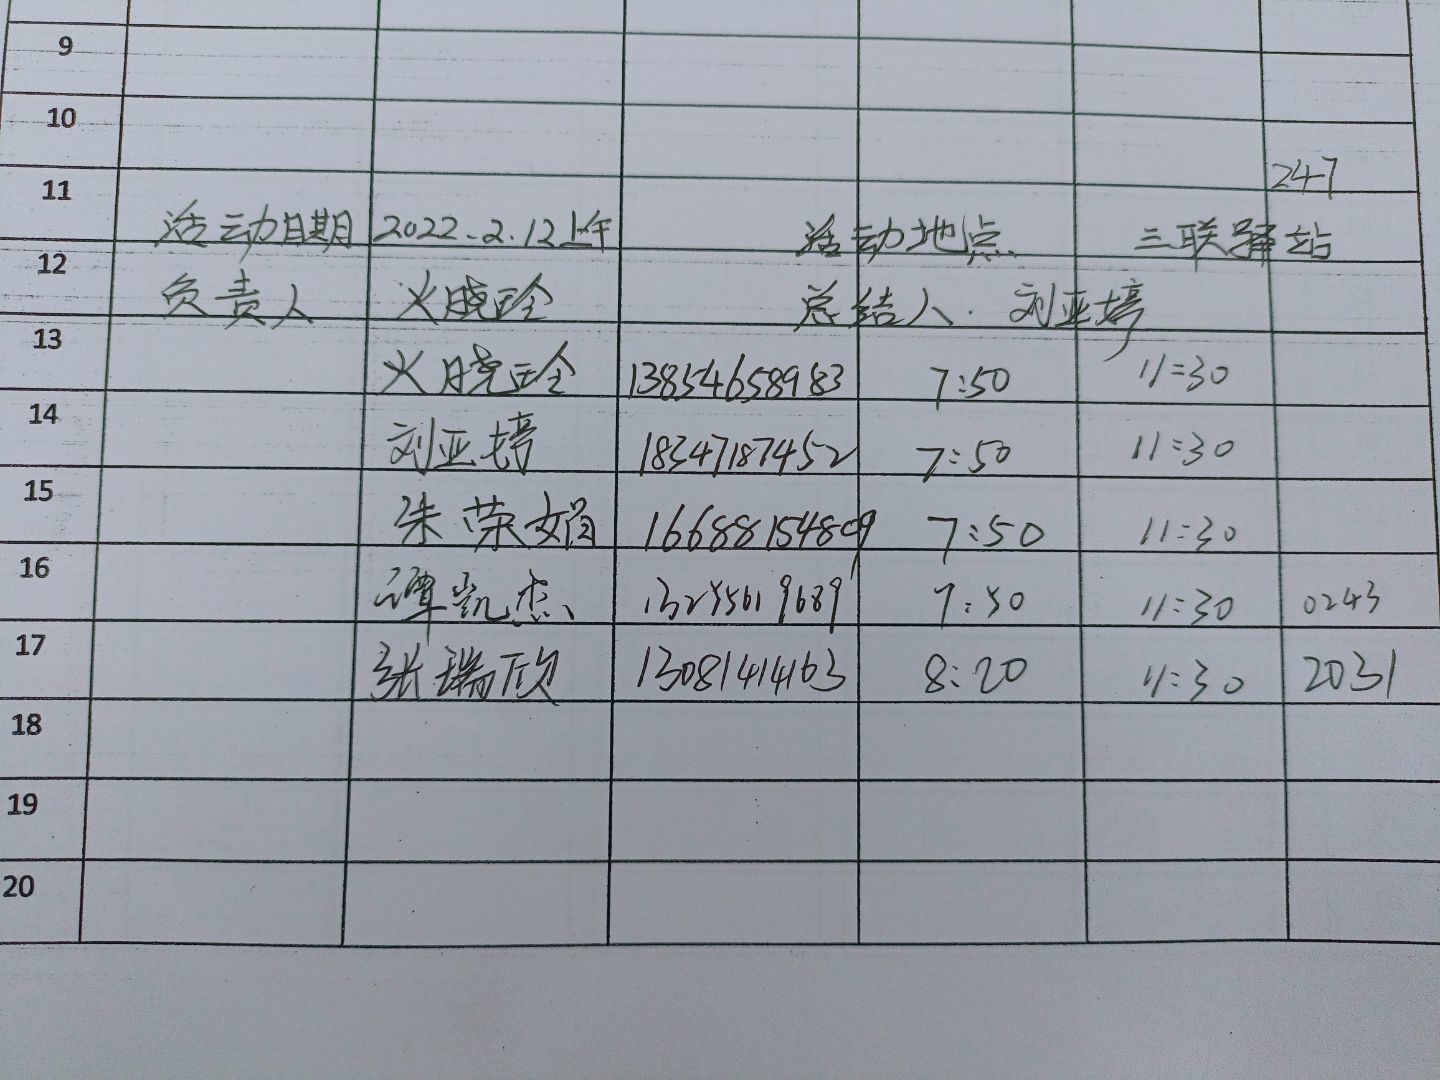 9
10
11 247
活动日期 2022.2.12上午 活动地点 三联驿站
12
负责人 火晓玲 总结人 刘亚婷
13 火晓玲 13854658983 7:50 11:30
14 刘亚婷 18347187452 7:50 11:30
15 朱荣娟 16688154809 7:50 11:30
16 谭凯杰 7:50 11:30 0243
17 张瑞欣 13081414163 8:20 11:30 2031
18
19
20